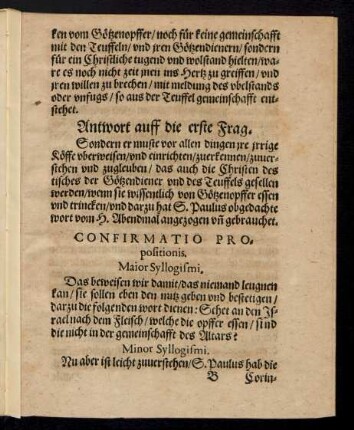 ken vom Götzenopffer/ noch für keine gemeinschafft
mit den Teuffeln/ vnd jren Götzendienern/ sondern
für ein Christliche tugend vnd wolstand hielten/ wa-
re es noch nicht zeit jnen ins Hertz zu greiffen/ vnd
jren willen zu brechen/ mit meldung des vbelstands
oder vnfugs/ so aus der Teuffel gemeinschafft ent-
stehet.
Antwort auff die erste Frag.
Sondern er muste vor allen dingen jre jrrige
Köffe vberweisen/ vnd einrichten/ zuerkennen/ zuuer-
stehen vnd zugleuben/ das auch die Christen des
tisches der Götzendiener vnd des Teuffels gesellen
werden/ wenn sie wissentlich von Götzenopffer essen
vnd trincken/ vnd darzu hat S. Paulus obgedachte
wort vom H. Abendmal angezogen vñ gebrauchet.
CONFIRMATIO PRO-
positionis.
Maior Syllogiſmi.
Das beweisen wir damit/ das niemand leugnen
kan/ sie sollen eben den nutz geben vnd bestetigen/
darzu die folgenden wort dienen: Sehet an den Js-
rael nach dem Fleisch/ welche die opffer essen/ sind
die nicht in der gemeinschafft des Altars?
Minor Syllogiſmi.
Nu aber ist leicht zuuerstehen/ S. Paulus hab die
B Corin-